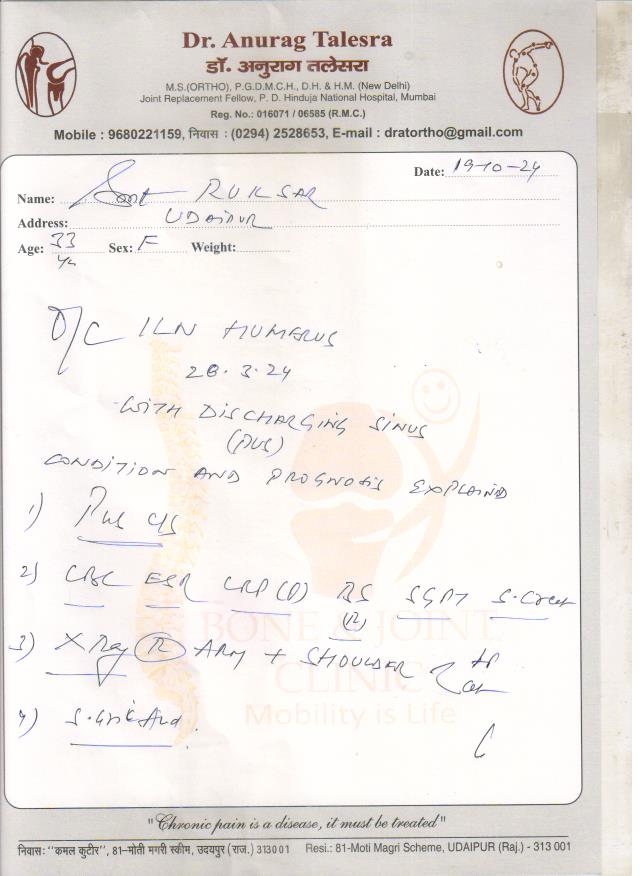 Dr. Anurag Talesra
डॉ. अनुराग तलेसरा
M.S.(ORTHO), P.G.D.M.C.H., D.H. & H.M. (New Delhi)
Joint Replacement Fellow, P. D. Hinduja National Hospital, Mumbai
Reg. No.: 016071 / 06585 (R.M.C.)
Mobile : 9680221159, निवास : (0294) 2528653, E-mail : dratortho@gmail.com
Date: 19-10-24
Name: RUKSAR
Address: UDAIPUR
Age: 33 Sex: F Weight:
ILN HUMERUS
28.3.24
WITH DISCHARGING SINUS
(PUS)
CONDITION AND PROGNOSIS EXPLAINED
1) Pus c/s
2) CBC ESR CRP(Q) BS SGPT S.Creat
(R)
3) X Ray R ARM + SHOULDER AP
Lat
4) S. Uric Acid.
BONE & JOINT
CLINIC
Mobility is Life
"Chronic pain is a disease, it must be treated"
निवास: "कमल कुटीर", 81-मोती मगरी स्कीम, उदयपुर (राज.) 313001 Resi.: 81-Moti Magri Scheme, UDAIPUR (Raj.) - 313 001